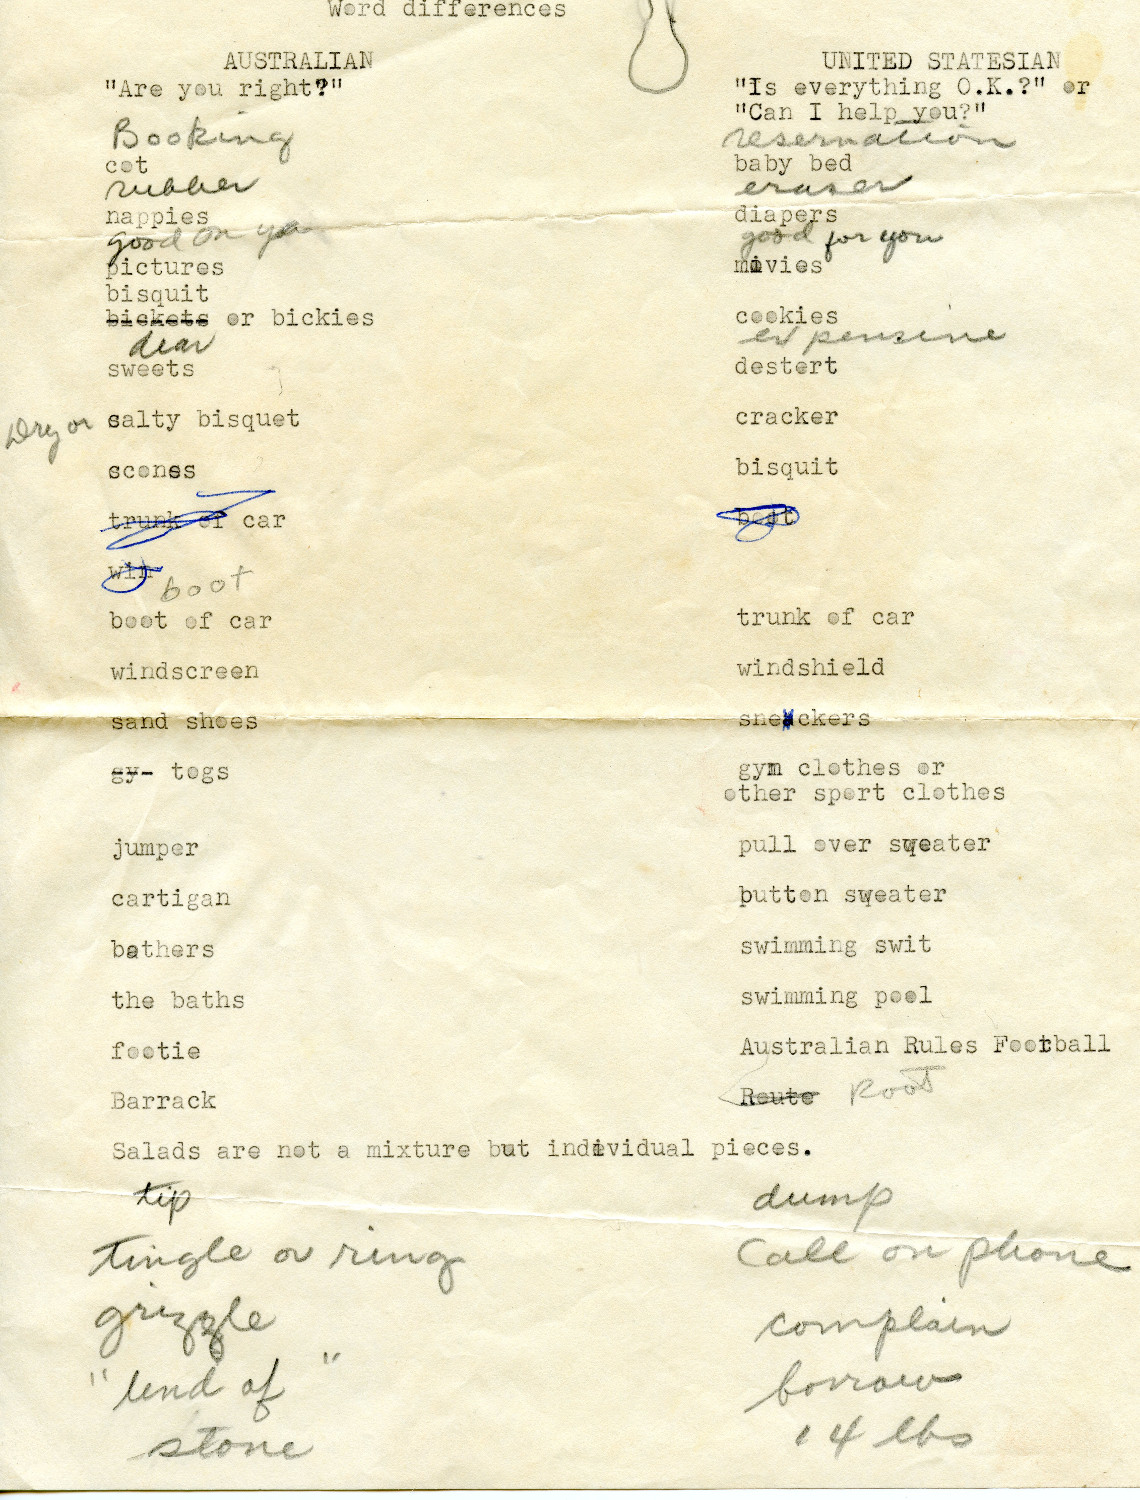 Word differences
AUSTRALIAN UNITED STATESIAN
"Are you right?" "Is everything O.K.?" or
"Can I help you?"
Booking reservation
cot baby bed
rubber eraser
nappies diapers
good on ya good for you
pictures movies
bisquit
bickets or bickies cookies
dear expensive
sweets destert
Dry or salty bisquet cracker
scones bisquit
trunk of car boot
win boot
boot of car trunk of car
windscreen windshield
sand shoes sneackers
gy- togs gym clothes or
other sport clothes
jumper pull over sweater
cartigan button sweater
bathers swimming swit
the baths swimming pool
footie Australian Rules Football
Barrack Route Root
Salads are not a mixture but individual pieces.
tip dump
tingle or ring Call on phone
grizzle complain
"lend of" borrow
stone 14 lbs